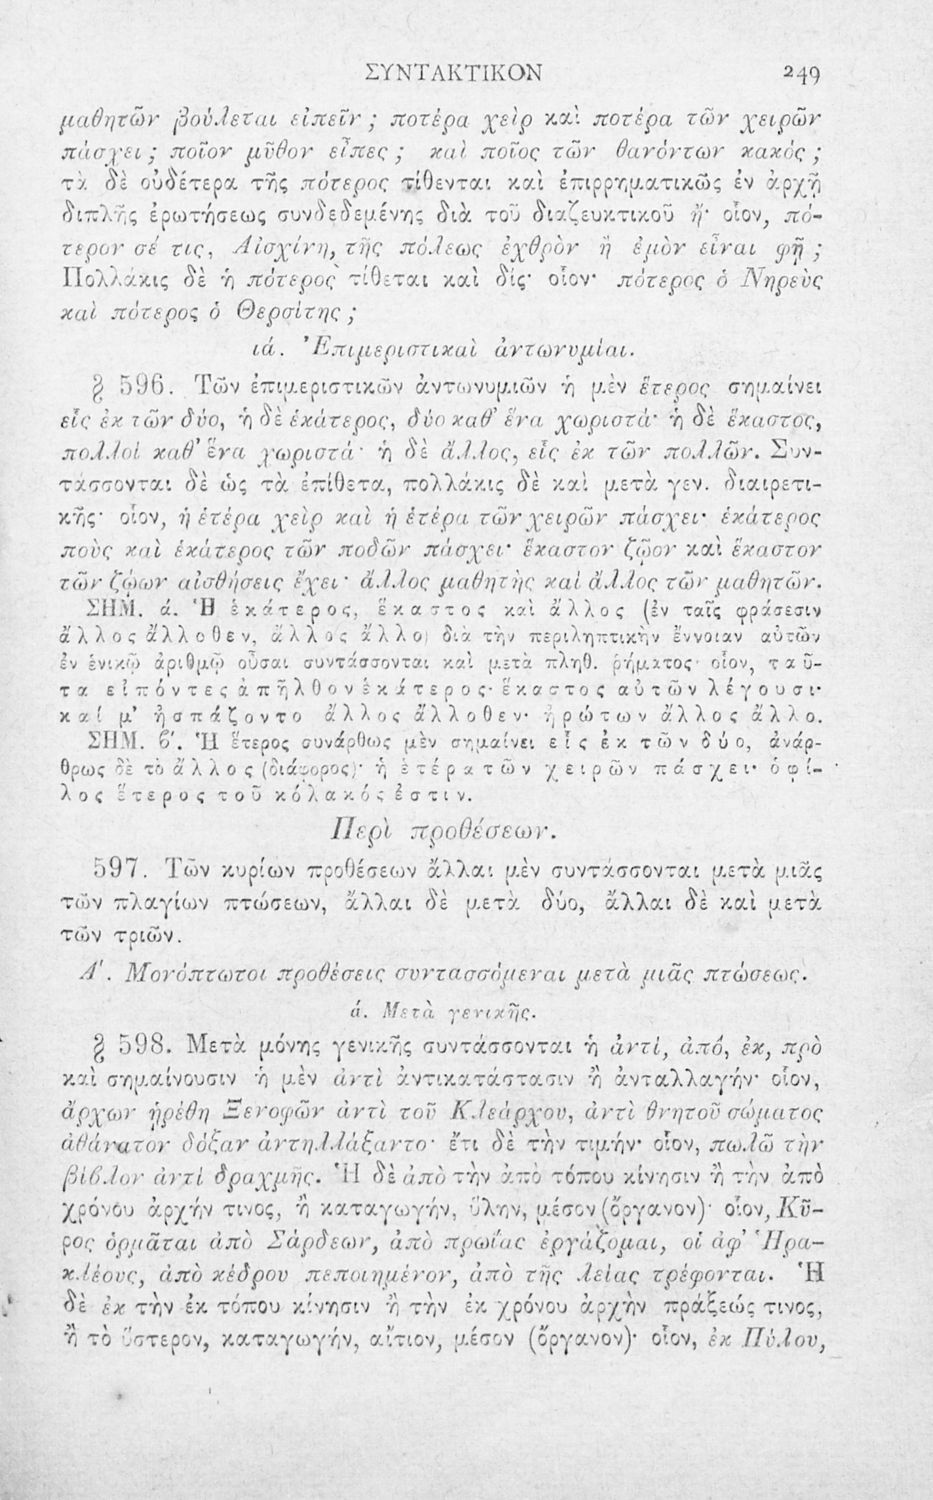 ΣΥΝΤΑΚΤΙΚΟΝ 249
μαθητῶν βούλεται εἰπεῖν ; ποτέρα χεὶρ καὶ ποτέρα τῶν χειρῶν
πάσχει ; ποῖον μῦθον εἶπες ; καὶ ποῖος τῶν θανόντων κακός ;
τὰ δὲ οὐδέτερα τῆς πότερος τίθενται καὶ ἐπιρρηματικῶς ἐν ἀρχῇ
διπλῆς ἐρωτήσεως συνδεδεμένης διὰ τοῦ διαζευκτικοῦ ἤ· οἷον, πό-
τερον σέ τις, Αἰσχίνη, τῆς πόλεως ἐχθρὸν ἢ ἐμὸν εἶναι φῇ ;
Πολλάκις δὲ ἡ πότερος τίθεται καὶ δίς· οἷον· πότερος ὁ Νηρεὺς
καὶ πότερος ὁ Θερσίτης ;
ιά. Ἐπιμεριστικαὶ ἀντωνυμίαι.
§ 596. Τῶν ἐπιμεριστικῶν ἀντωνυμιῶν ἡ μὲν ἕτερος σημαίνει
εἷς ἐκ τῶν δύο, ἡ δὲ ἑκάτερος, δύο καθ' ἕνα χωριστά· ἡ δὲ ἕκαστος,
πολλοὶ καθ' ἕνα χωριστά· ἡ δὲ ἄλλος, εἷς ἐκ τῶν πολλῶν. Συν-
τάσσονται δὲ ὡς τὰ ἐπίθετα, πολλάκις δὲ καὶ μετὰ γεν. διαιρετι-
κῆς· οἷον, ἡ ἑτέρα χεὶρ καὶ ἡ ἑτέρα τῶν χειρῶν πάσχει· ἑκάτερος
ποὺς καὶ ἑκάτερος τῶν ποδῶν πάσχει· ἕκαστον ζῷον καὶ ἕκαστον
τῶν ζῴων αἰσθήσεις ἔχει· ἄλλος μαθητὴς καὶ ἄλλος τῶν μαθητῶν.
ΣΗΜ. ά. Ἡ ἑκάτερος, ἕκαστος καὶ ἄλλος (ἐν ταῖς φράσεσιν
ἄλλος ἄλλοθεν, ἄλλος ἄλλο) διὰ τὴν περιληπτικὴν ἔννοιαν αὐτῶν
ἐν ἑνικῷ ἀριθμῷ οὖσαι συντάσσονται καὶ μετὰ πληθ. ῥήματος· οἷον, ταῦ-
τα εἰπόντες ἀπῆλθον ἑκάτερος· ἕκαστος αὐτῶν λέγουσι·
καί μ' ἠσπάζοντο ἄλλος ἄλλοθεν· ἠρώτων ἄλλος ἄλλο.
ΣΗΜ. ϐ'. Ἡ ἕτερος συνάρθως μὲν σημαίνει εἷς ἐκ τῶν δύο, ἀνάρ-
θρως δὲ τὸ ἄλλος (διάφορος)· ἡ ἑτέρα τῶν χειρῶν πάσχει· ὁ φί-
λος ἕτερος τοῦ κόλακός ἐστιν.
Περὶ προθέσεων.
597. Τῶν κυρίων προθέσεων ἄλλαι μὲν συντάσσονται μετὰ μιᾶς
τῶν πλαγίων πτώσεων, ἄλλαι δὲ μετὰ δύο, ἄλλαι δὲ καὶ μετὰ
τῶν τριῶν.
Α'. Μονόπτωτοι προθέσεις συντασσόμεναι μετὰ μιᾶς πτώσεως.
ά. Μετὰ γενικῆς.
§ 598. Μετὰ μόνης γενικῆς συντάσσονται ἡ ἀντί, ἀπό, ἐκ, πρὸ
καὶ σημαίνουσιν ἡ μὲν ἀντὶ ἀντικατάστασιν ἢ ἀνταλλαγήν· οἷον,
ἄρχων ᾑρέθη Ξενοφῶν ἀντὶ τοῦ Κλεάρχου, ἀντὶ θνητοῦ σώματος
ἀθάνατον δόξαν ἀντηλλάξαντο· ἔτι δὲ τὴν τιμήν· οἷον, πωλῶ τὴν
βίβλον ἀντὶ δραχμῆς. Ἡ δὲ ἀπὸ τὴν ἀπὸ τόπου κίνησιν ἢ τὴν ἀπὸ
χρόνου ἀρχήν τινος, ἢ καταγωγήν, ὕλην, μέσον (ὄργανον)· οἷον, Κῦ-
ρος ὁρμᾶται ἀπὸ Σάρδεων, ἀπὸ πρωΐας ἐργάζομαι, οἱ ἀφ' Ἡρα-
κλέους, ἀπὸ κέδρου πεποιημένον, ἀπὸ τῆς λείας τρέφονται. Ἡ
δὲ ἐκ τὴν ἐκ τόπου κίνησιν ἢ τὴν ἐκ χρόνου ἀρχὴν πράξεώς τινος,
ἢ τὸ ὕστερον, καταγωγήν, αἴτιον, μέσον (ὄργανον)· οἷον, ἐκ Πύλου,